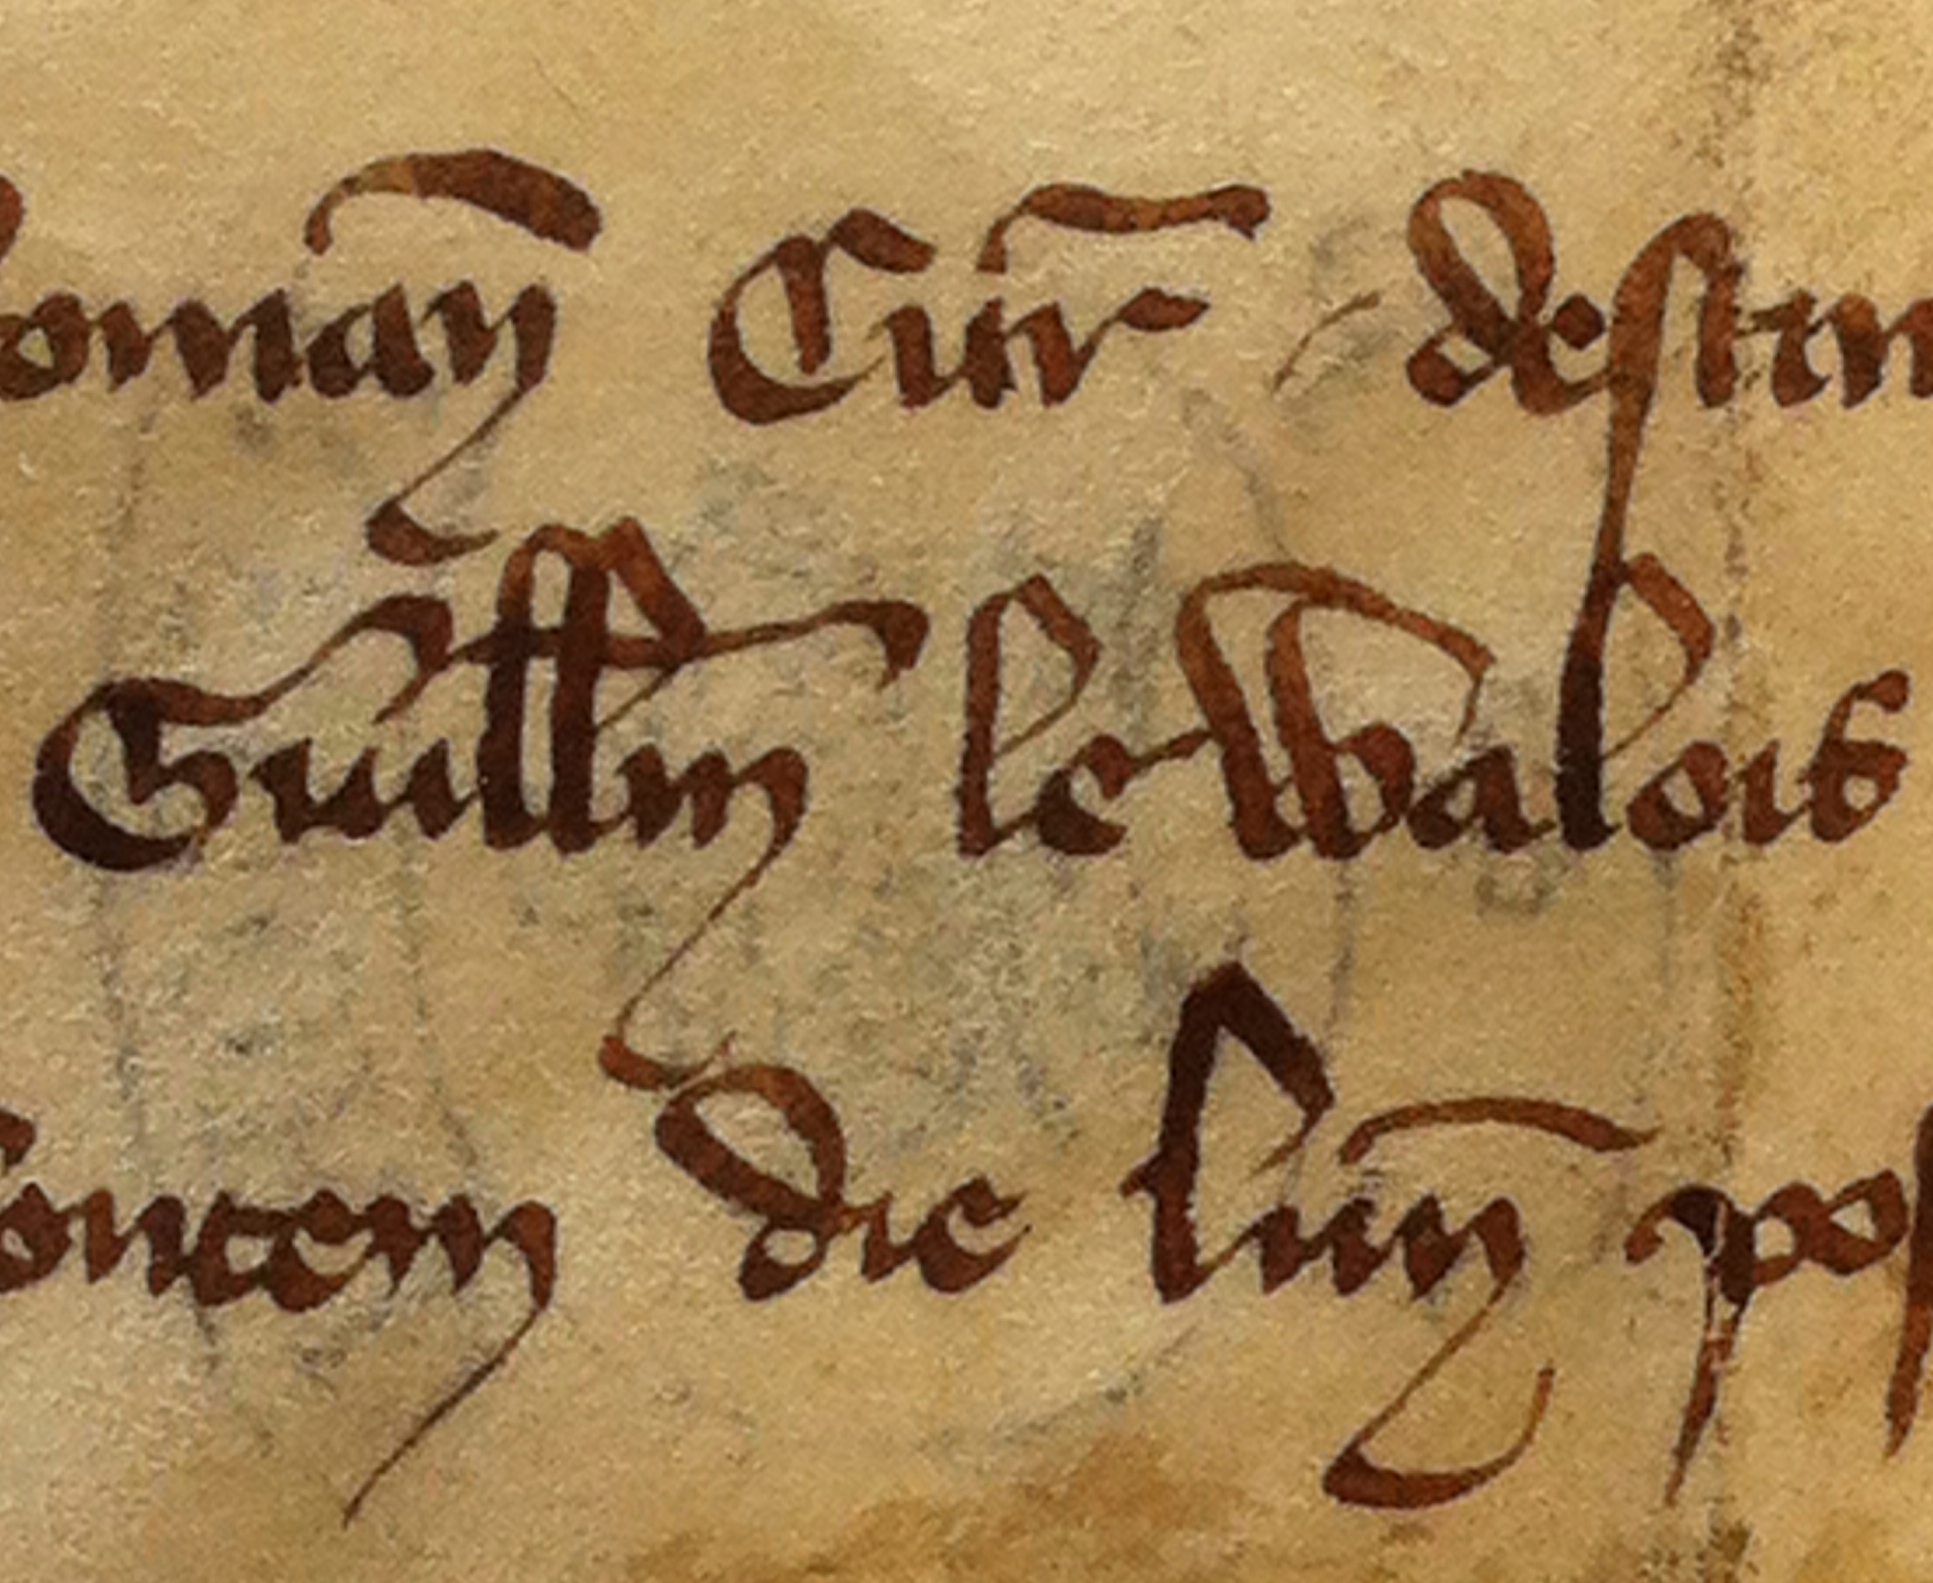 oman̄ Cur̄ destin
Guillm̄ le Walois
ontem die lun̄ pos